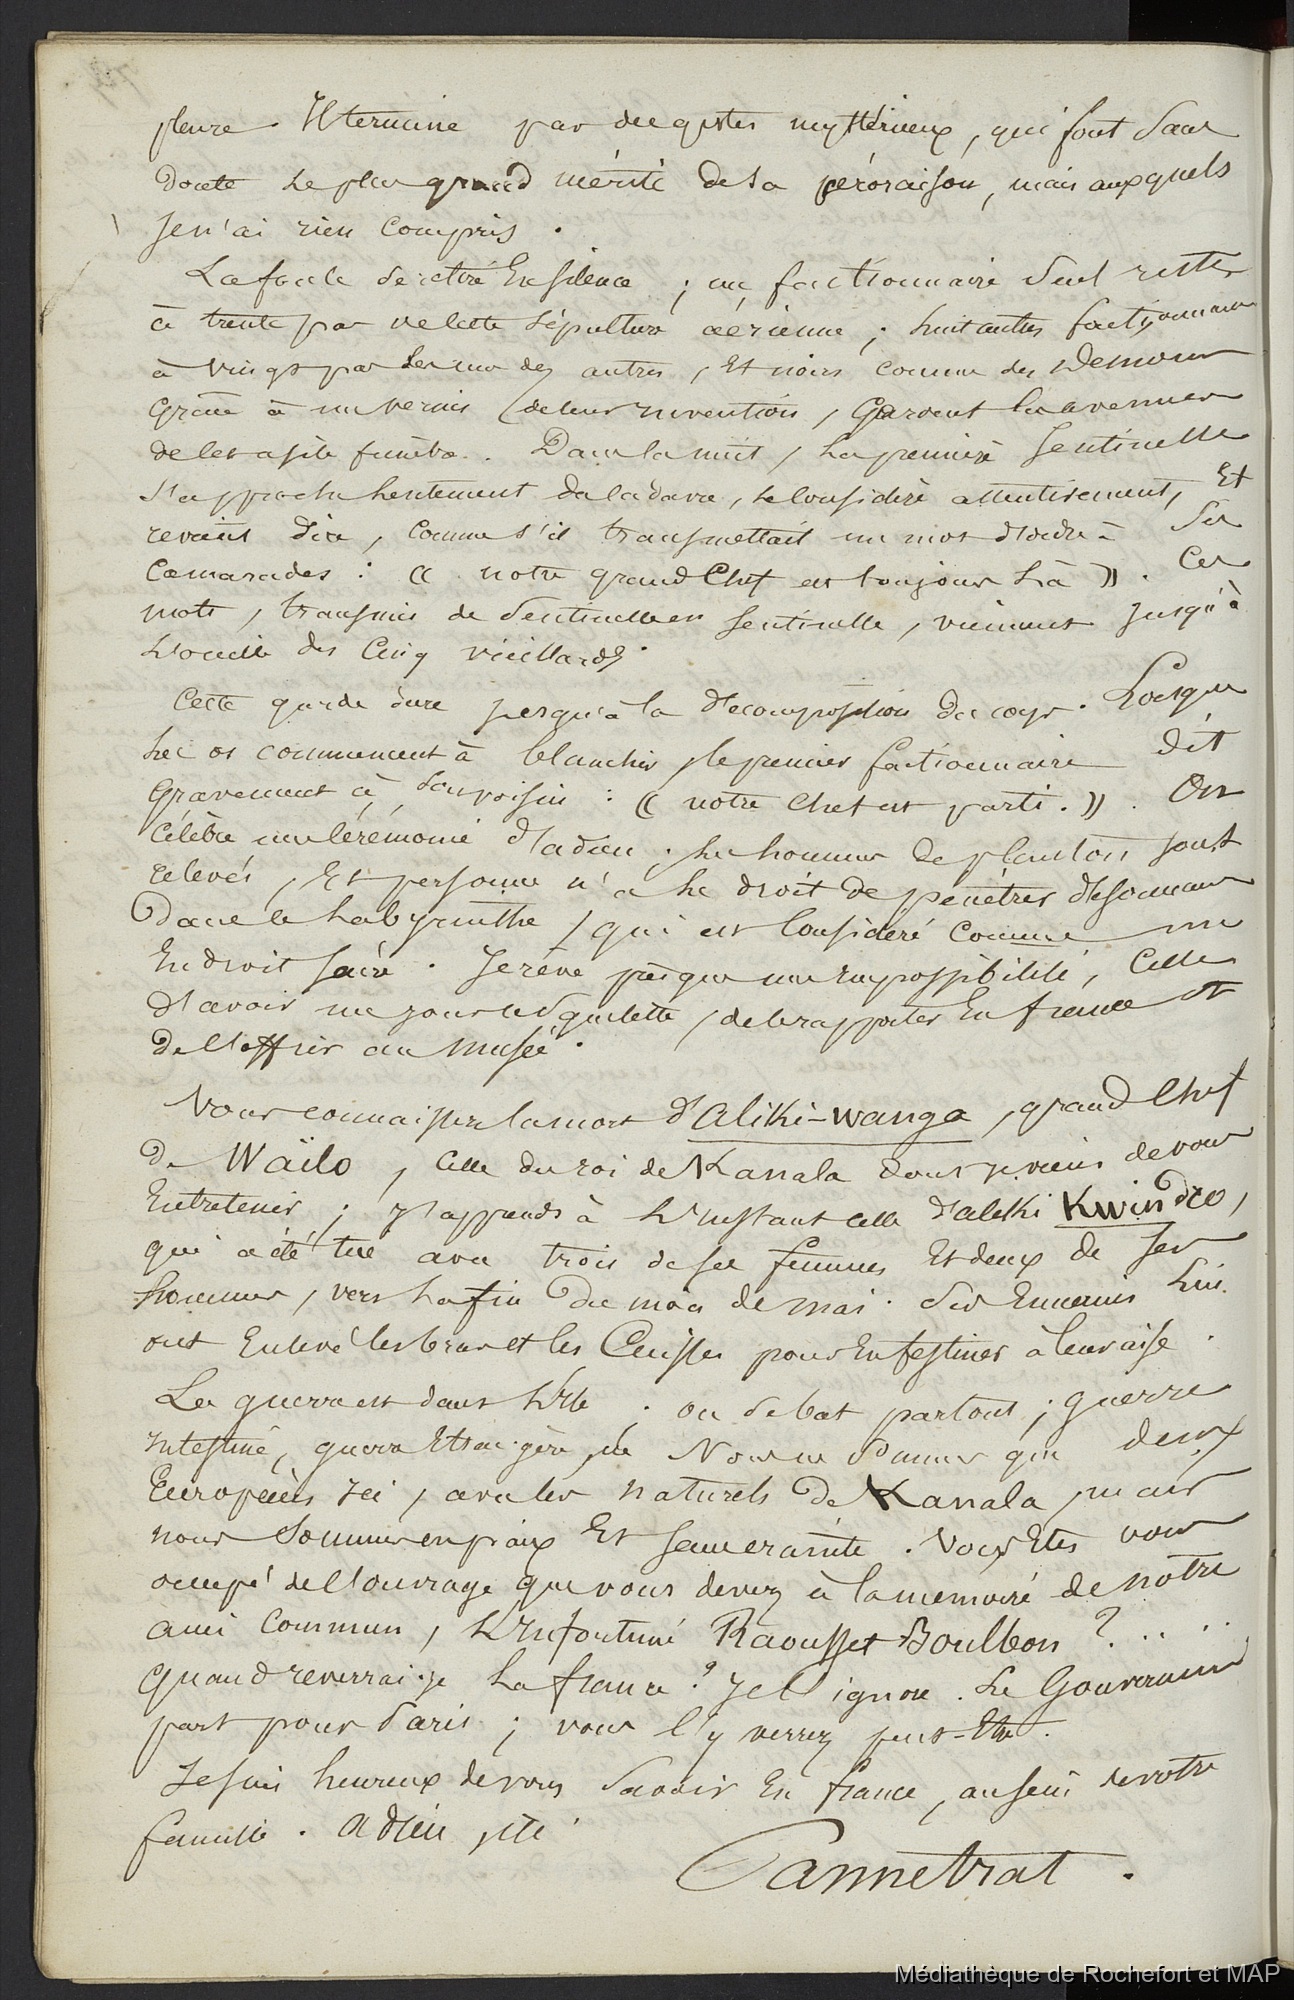 pleure. Il termine par des gestes mystérieux, qui font sans
doute le plus grand mérite de sa péroraison, mais auxquels
je n'ai rien compris.
La foule se retire En silence ; un factionnaire seul reste
à trente pas de cette sépulture aérienne ; huit autres factionnaires
à vingt pas les uns des autres, Et noirs comme des Demons
grâce à un vernis de leur invention, Gardent les avenues
de cet asile funèbre. Dans la nuit, la première sentinelle
s'approche lentement du cadavre, le considère attentivement, Et
revient dire, comme s'il transmettait un mot d'ordre à ses
camarades : « notre grand Chef est toujours là ». Ces
mots, transmis de sentinelle en sentinelle, viennent jusqu'à
l'oreille des Cinq vieillards.
Cette garde dure jusqu'à la décomposition du corps. Lorsque
les os commencent à blanchir, le premier factionnaire dit
gravement à son voisin : « notre Chef est parti. » . On
célèbre une Cérémonie d'adieu ; les hommes de planton sont
relevés, Et personne n'a le droit de pénétrer désormais
Dans le Labyrinthe, qui est considéré comme un
Endroit sacré. Je rêve presque une impossibilité, celle
d'avoir un jour le squelette, de le rapporter En france et
de l'offrir au musée.
Vous connaissez la mort d'aliki-wanga, grand Chef
de Waïlo, celle du roi de Kanala dont je viens de vous
Entretenir ; j'apprends à l'instant celle d'aleki Kwindio,
qui a été tué avec trois de ses femmes Et deux de ses
hommes, vers la fin du mois de mai. Ses Ennemis lui
ont Enlevé les bras et les Cuisses pour En festiner à leur aise.
La guerre est dans l'Ile ; on se bat partout ; guerre
intestine, guerre Etrangère, Nous ne sommes que deux
Européens ici, avec les naturels de Kanala, mais
nous sommes en paix Et souveraineté. Vous Etes vous
occupé de l'ouvrage que vous devez à la mémoire de notre
ami commun, l'Infortuné Raousset-Boulbon ? . . . .
quand reverrai-je la france ? Je l'ignore. Le Gouverneur
part pour Paris ; vous l'y verrez peut-Etre.
Je suis heureux de vous savoir En france, au sein de votre
famille. adieu, etc.
Cannetrat.
Médiathèque de Rochefort et MAP